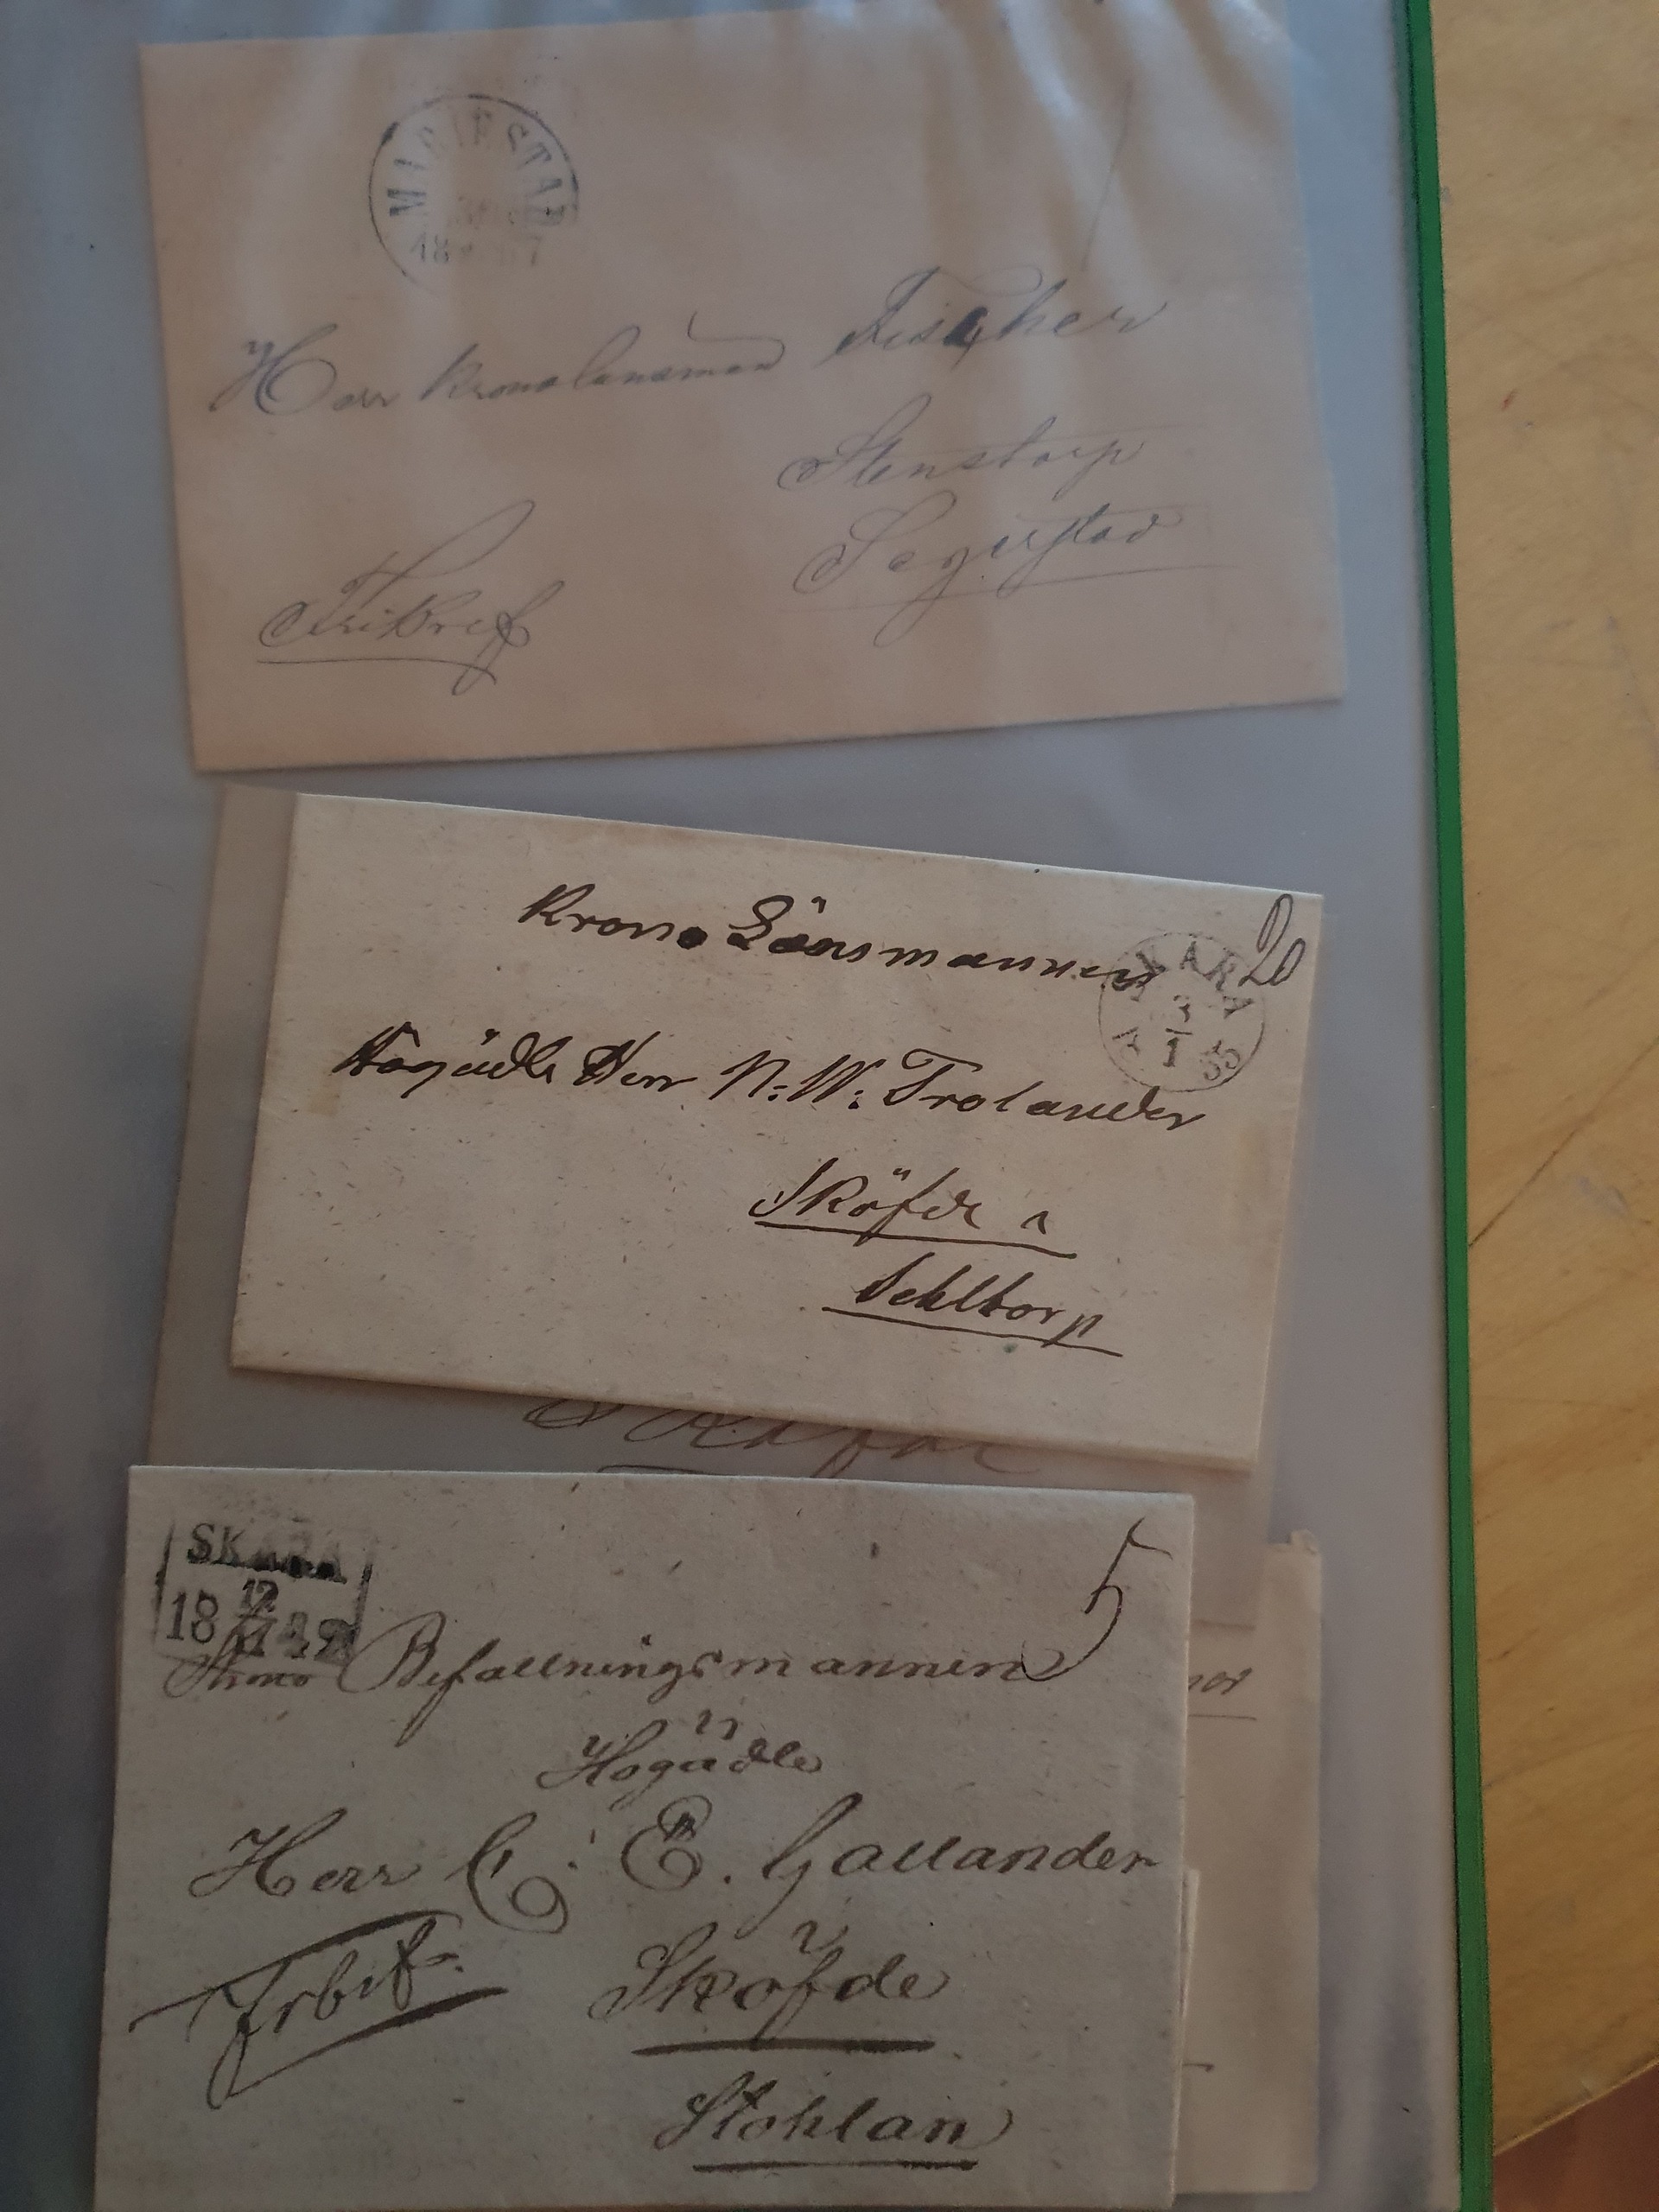 MARIESTAD
Herr Kronolänsman Fischer
Stenstorp
Segerstad
Fribref
Krono Länsmannen
20
SKARA
3
1
55
Högädle Herr N: W: Trolander
Sköfde
Sehltorp
SKARA
18
12
5
Krono Befallningsmannen
Högädle
Herr C: E. Gallander
Frbrf.
Sköfde
Stohlan